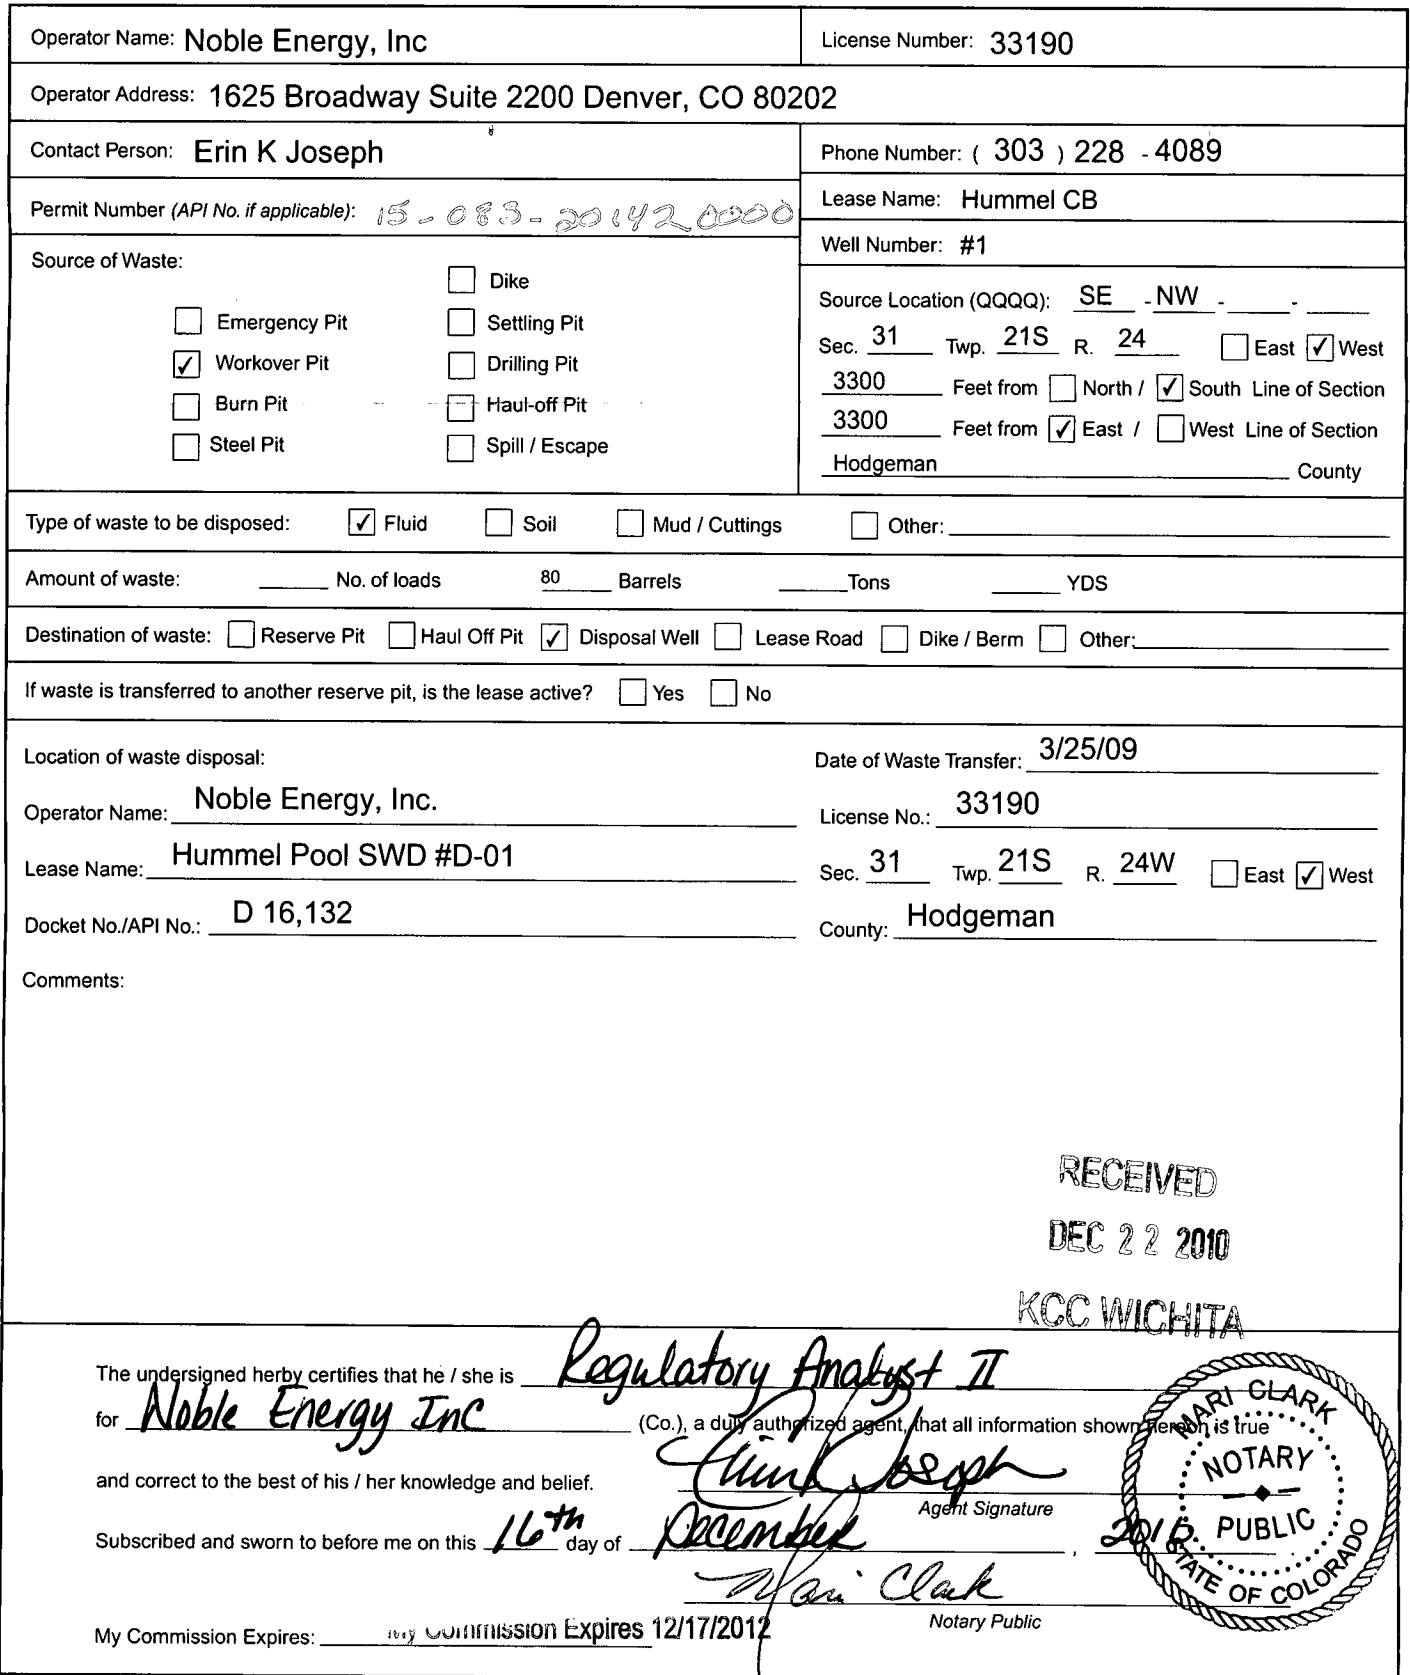 Operator Name: Noble Energy, Inc
License Number: 33190
Operator Address: 1625 Broadway Suite 2200 Denver, CO 80202
Contact Person: Erin K Joseph
Phone Number: ( 303 ) 228 - 4089
Permit Number (API No. if applicable): 15-083-20142 0000
Lease Name: Hummel CB
Well Number: #1
Source of Waste:
Dike
Emergency Pit
Settling Pit
✓ Workover Pit
Drilling Pit
Burn Pit
Haul-off Pit
Steel Pit
Spill / Escape
Source Location (QQQQ): SE - NW - -
Sec. 31 Twp. 21S R. 24 East ✓ West
3300 Feet from North / ✓ South Line of Section
3300 Feet from ✓ East / West Line of Section
Hodgeman County
Type of waste to be disposed: ✓ Fluid Soil Mud / Cuttings Other:
Amount of waste: No. of loads 80 Barrels Tons YDS
Destination of waste: Reserve Pit Haul Off Pit ✓ Disposal Well Lease Road Dike / Berm Other:
If waste is transferred to another reserve pit, is the lease active? Yes No
Location of waste disposal:
Date of Waste Transfer: 3/25/09
Operator Name: Noble Energy, Inc.
License No.: 33190
Lease Name: Hummel Pool SWD #D-01
Sec. 31 Twp. 21S R. 24W East ✓ West
Docket No./API No.: D 16,132
County: Hodgeman
Comments:
RECEIVED
DEC 22 2010
KCC WICHITA
The undersigned herby certifies that he / she is Regulatory Analyst II
for Noble Energy Inc (Co.), a duly authorized agent, that all information shown hereon is true
and correct to the best of his / her knowledge and belief. Erin K Joseph
Agent Signature
Subscribed and sworn to before me on this 16th day of December, 2010
Mari Clark
Notary Public
My Commission Expires: My Commission Expires 12/17/2012
MARI CLARK
NOTARY
PUBLIC
STATE OF COLORADO